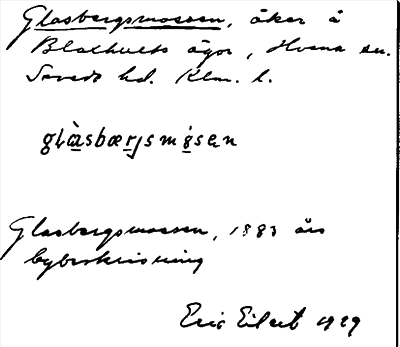 Glasbergsmossen, åker å
Blathults ägor, Hvena sn.
Sevede hd. Klm. l.
glàsbærjsmòsen
Glasbergsmossen, 1883 års
bybeskrivning
Eric Eilert 1929